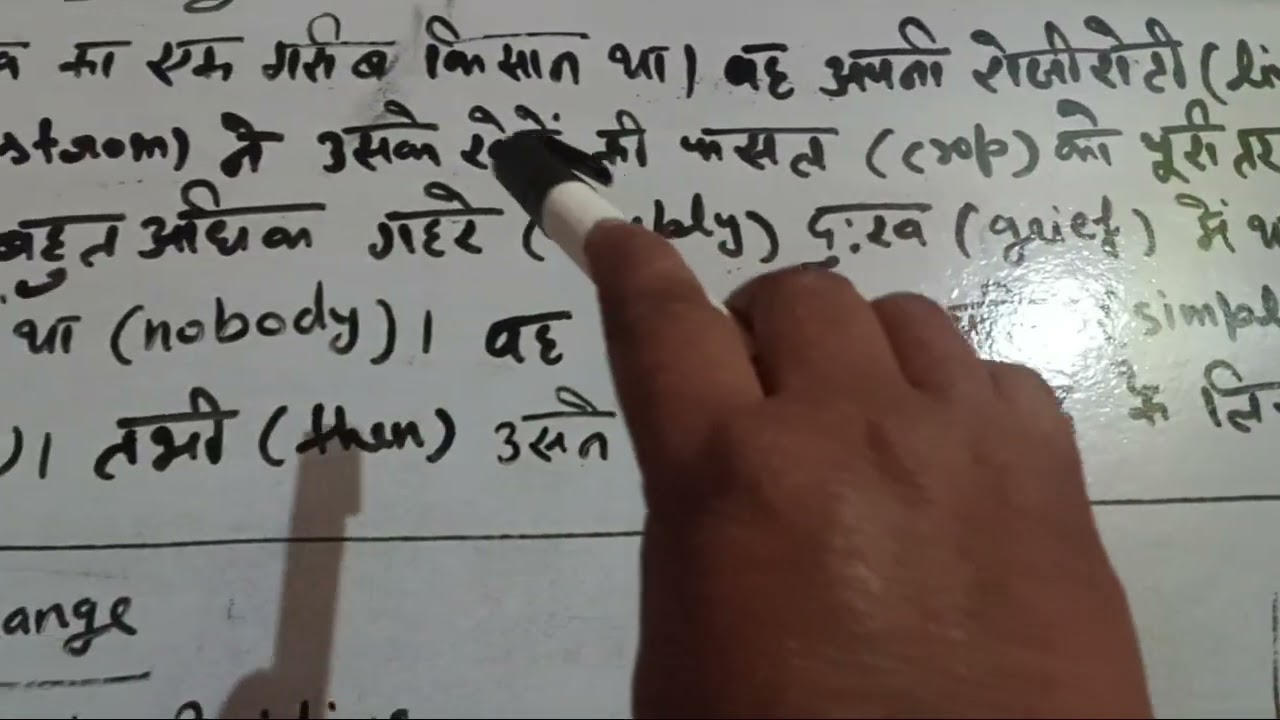 का एक गरीब किसान था। वह अपनी रोजीरोटी (li
strom) ने उसके खेतों की फसल (crop) को पूरी तर
बहुत अधिक गहरे ( bly) दुःख (grief) में थ
था (nobody)। वह simpl
)। तभी (then) उसने के लि
ange